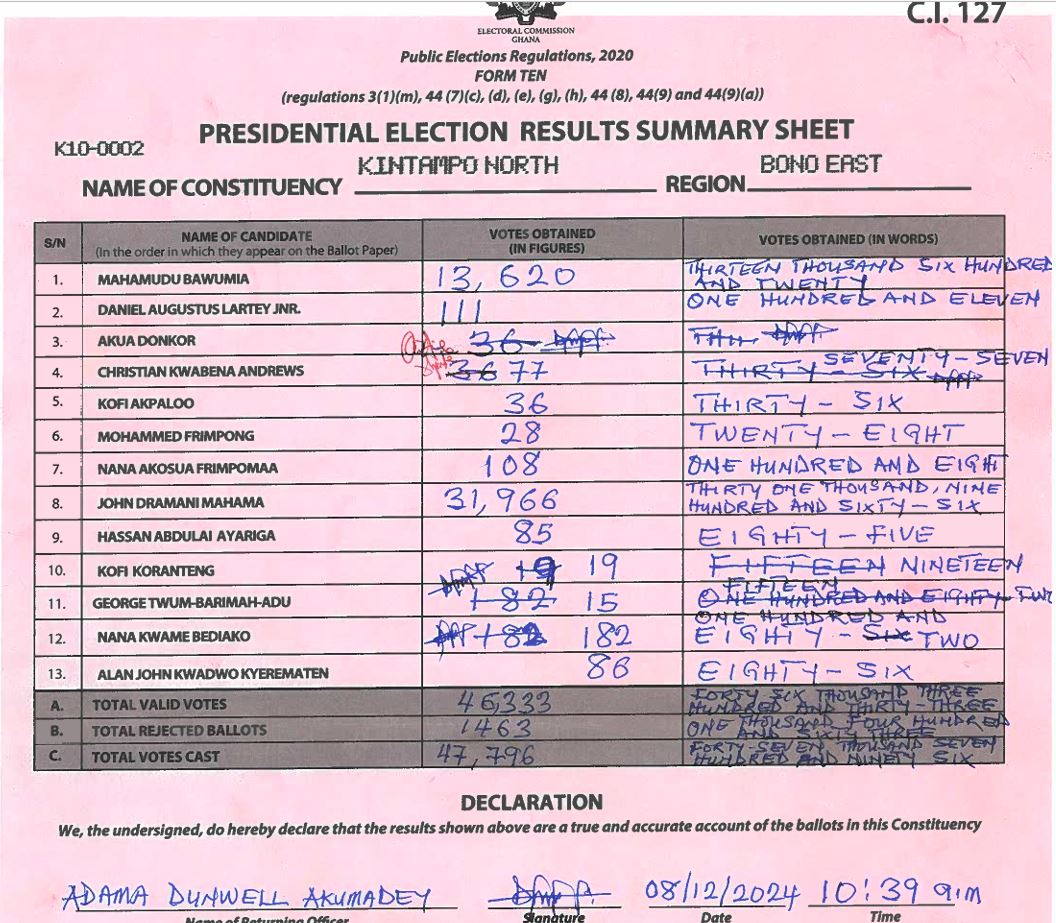 C.I. 127
ELECTORAL COMMISSION
GHANA
Public Elections Regulations, 2020
FORM TEN
(regulations 3(1)(m), 44 (7)(c), (d), (e), (g), (h), 44 (8), 44(9) and 44(9)(a))
PRESIDENTIAL ELECTION RESULTS SUMMARY SHEET
K10-0002
NAME OF CONSTITUENCY KINTAMPO NORTH REGION BONO EAST
S/N NAME OF CANDIDATE (In the order in which they appear on the Ballot Paper) VOTES OBTAINED (IN FIGURES) VOTES OBTAINED (IN WORDS)
1. MAHAMUDU BAWUMIA 13,620 THIRTEEN THOUSAND SIX HUNDRED AND TWENTY
2. DANIEL AUGUSTUS LARTEY JNR. 111 ONE HUNDRED AND ELEVEN
3. AKUA DONKOR 36
4. CHRISTIAN KWABENA ANDREWS 36 77 THIRTY-SIX SEVENTY-SEVEN
5. KOFI AKPALOO 36 THIRTY-SIX
6. MOHAMMED FRIMPONG 28 TWENTY-EIGHT
7. NANA AKOSUA FRIMPOMAA 108 ONE HUNDRED AND EIGHT
8. JOHN DRAMANI MAHAMA 31,966 THIRTY ONE THOUSAND, NINE HUNDRED AND SIXTY-SIX
9. HASSAN ABDULAI AYARIGA 85 EIGHTY-FIVE
10. KOFI KORANTENG 19 FIFTEEN NINETEEN
11. GEORGE TWUM-BARIMAH-ADU 182 15 FIFTEEN ONE HUNDRED AND EIGHTY-TWO
12. NANA KWAME BEDIAKO 182 ONE HUNDRED AND EIGHTY-SIX TWO
13. ALAN JOHN KWADWO KYEREMATEN 86 EIGHTY-SIX
A. TOTAL VALID VOTES 46,333 FORTY SIX THOUSAND THREE HUNDRED AND THIRTY-THREE
B. TOTAL REJECTED BALLOTS 1463 ONE THOUSAND FOUR HUNDRED AND SIXTY THREE
C. TOTAL VOTES CAST 47,796 FORTY-SEVEN THOUSAND SEVEN HUNDRED AND NINETY SIX
DECLARATION
We, the undersigned, do hereby declare that the results shown above are a true and accurate account of the ballots in this Constituency
ADAMA DUNWELL AKUMADEY 08/12/2024 10:39 am
Name of Returning Officer Signature Date Time